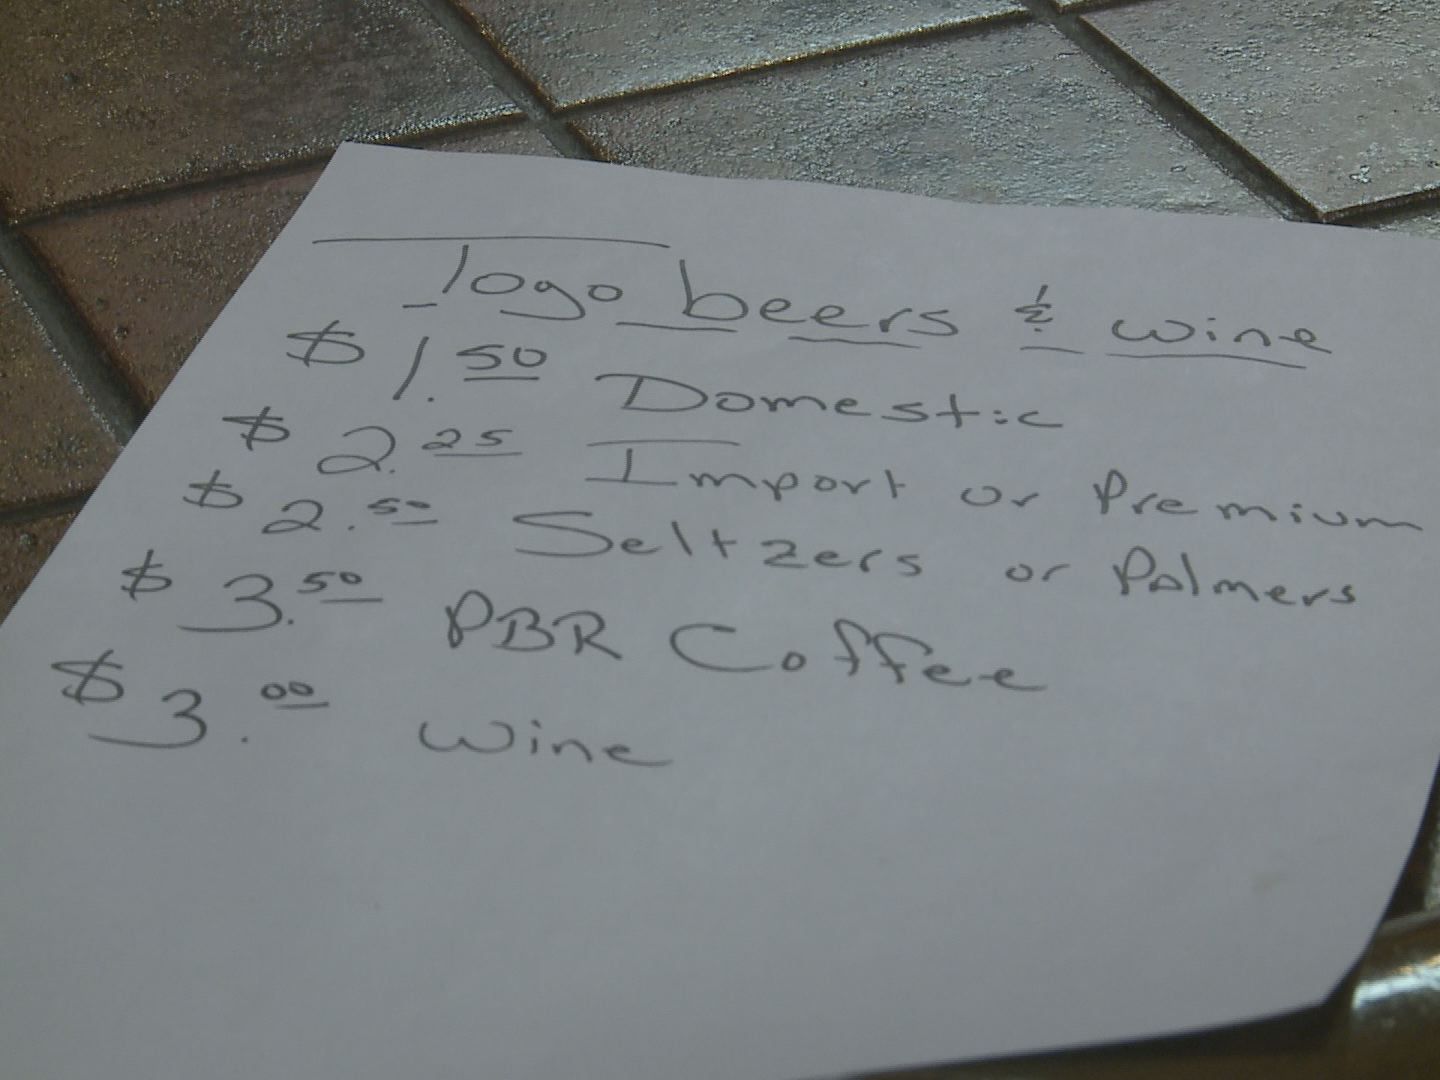 Togo beers & wine
$1.50 Domestic
$2.25 Import or Premium
$2.50 Seltzers or Palmers
$3.50 PBR Coffee
$3.00 wine